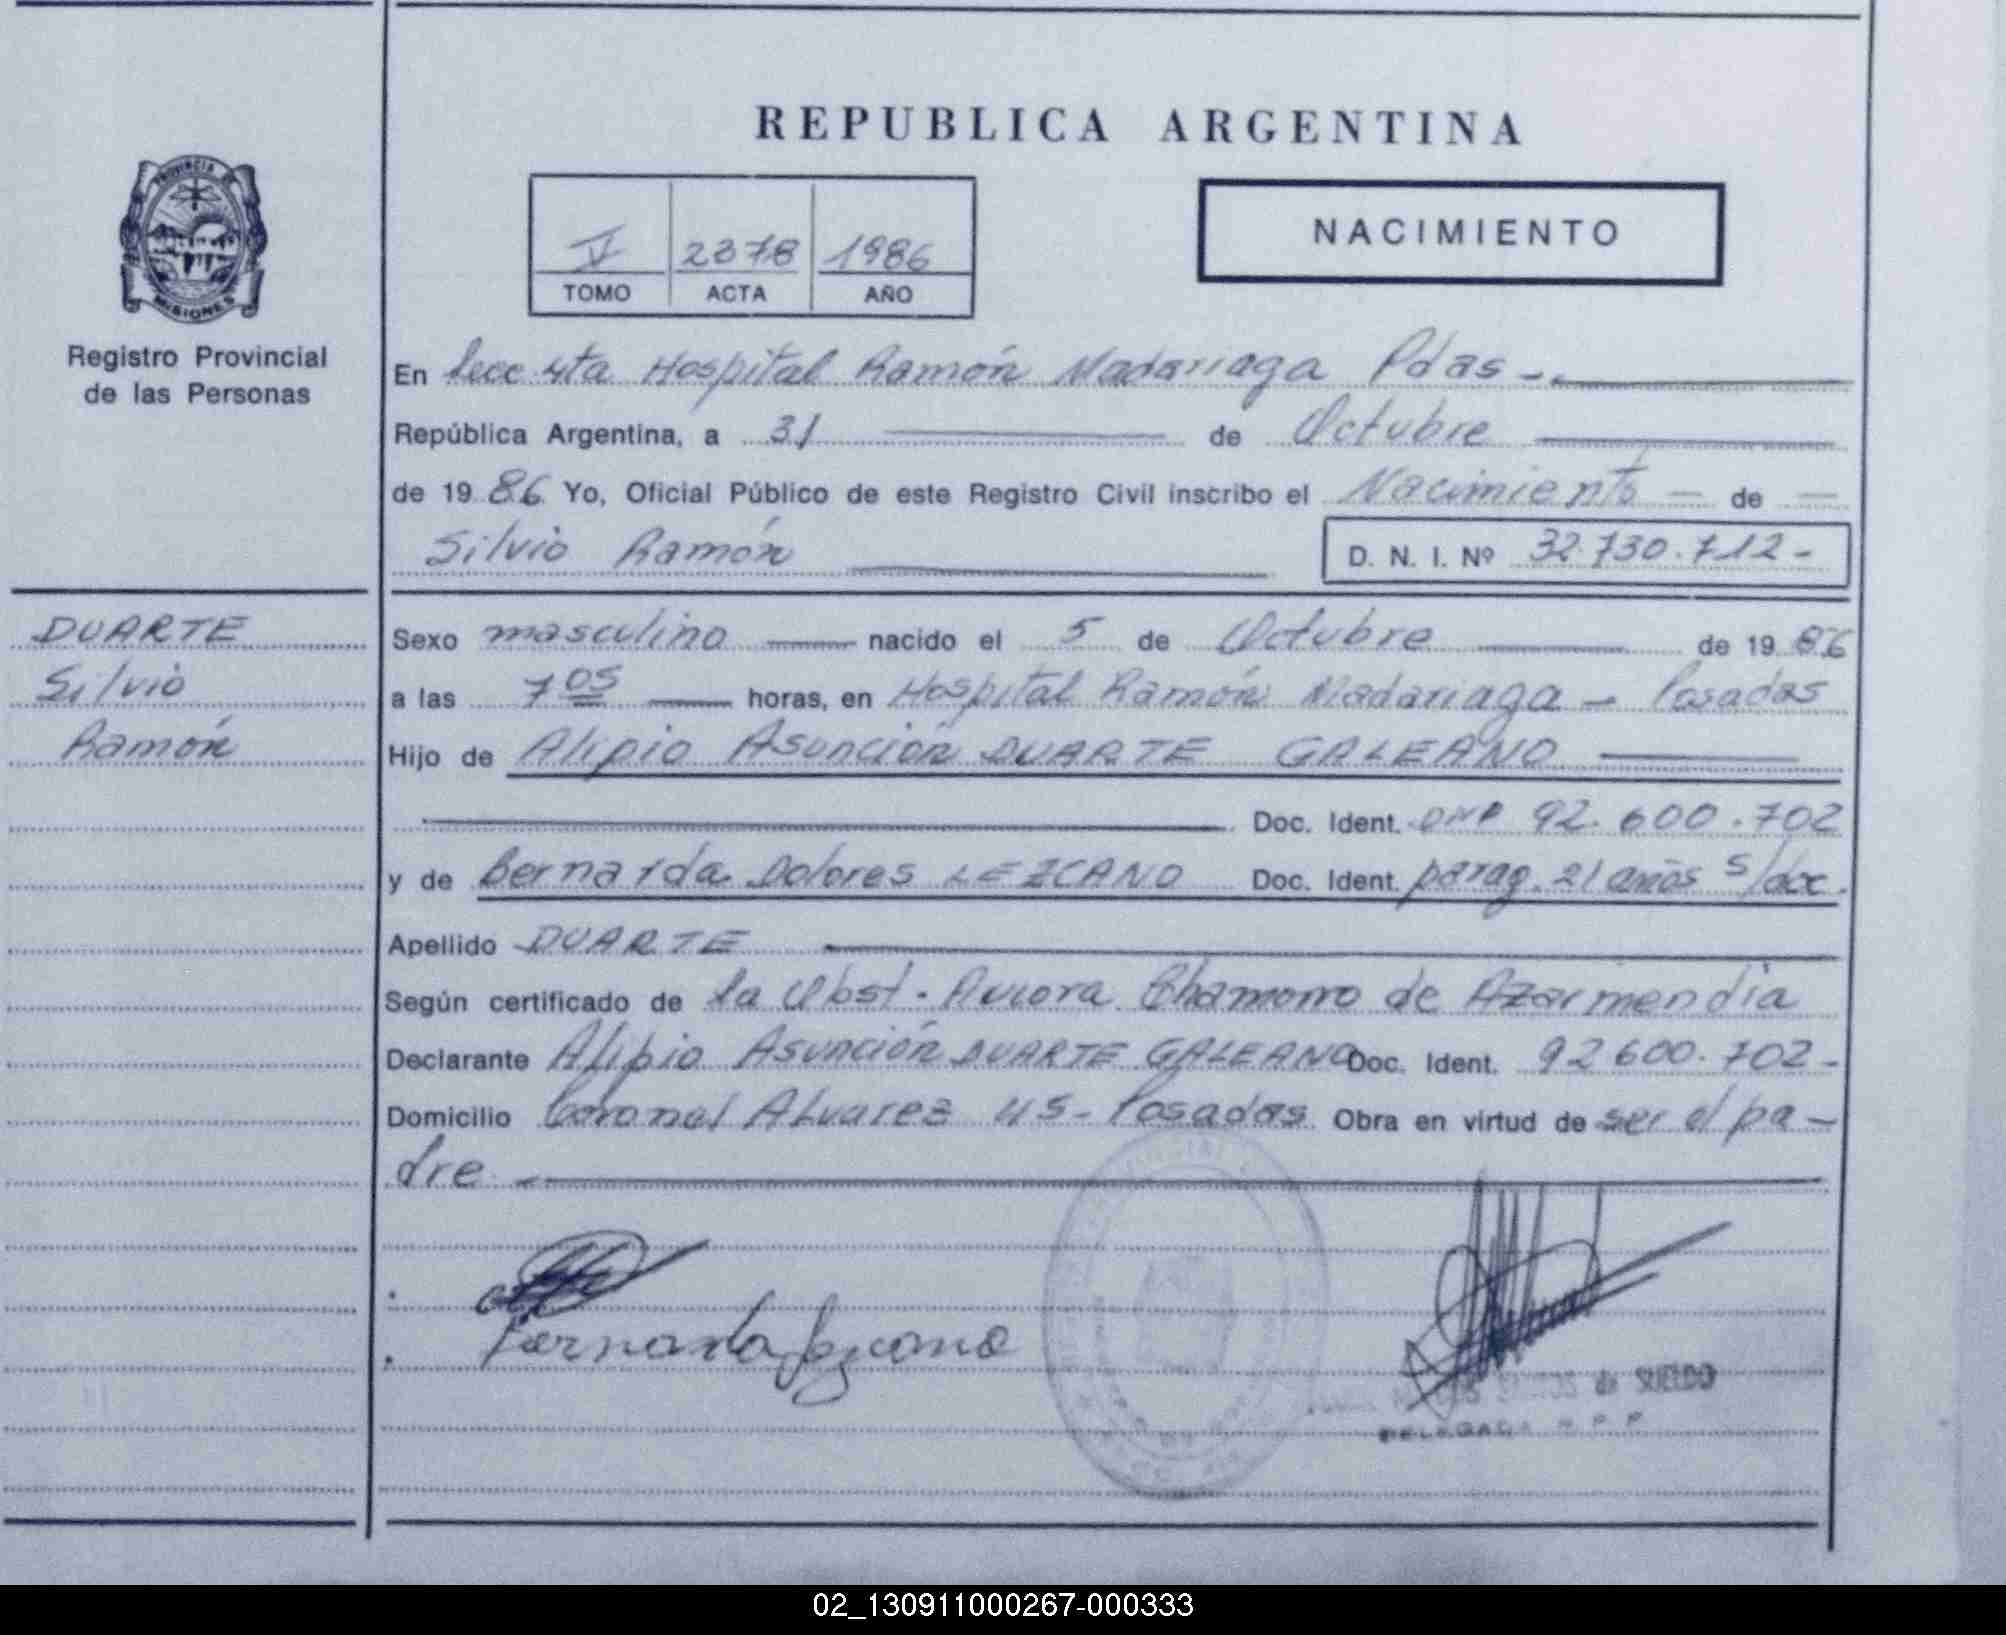 REPUBLICA ARGENTINA
PROVINCIA DE
MISIONES
Registro Provincial
de las Personas
V 2378 1986
TOMO ACTA AÑO
NACIMIENTO
En Secc 4ta Hospital Ramón Madariaga Pdas -.
República Argentina, a 31 de Octubre
de 1986 Yo, Oficial Público de este Registro Civil inscribo el Nacimiento — de —
Silvio Ramón
D. N. I. Nº 32.730.712-
DUARTE
Silvio
Ramón
Sexo masculino nacido el 5 de Octubre de 1986
a las 7 05 horas, en Hospital Ramón Madariaga - Posadas
Hijo de Alipio Asunción DUARTE GALEANO
Doc. Ident. 92.600.702
y de Bernarda Dolores LEZCANO Doc. Ident. parag. 21 años s/doc.
Apellido DUARTE
Según certificado de la Obst. Aurora Chamorro de Azarmendia
Declarante Alipio Asunción DUARTE GALEANO Doc. Ident. 92600.702-
Domicilio Coronel Alvarez 45- Posadas Obra en virtud de ser el pa-
dre
Bernarda Lezcano
de SUELDO
DELEGADA R.P.P.
02_130911000267-000333